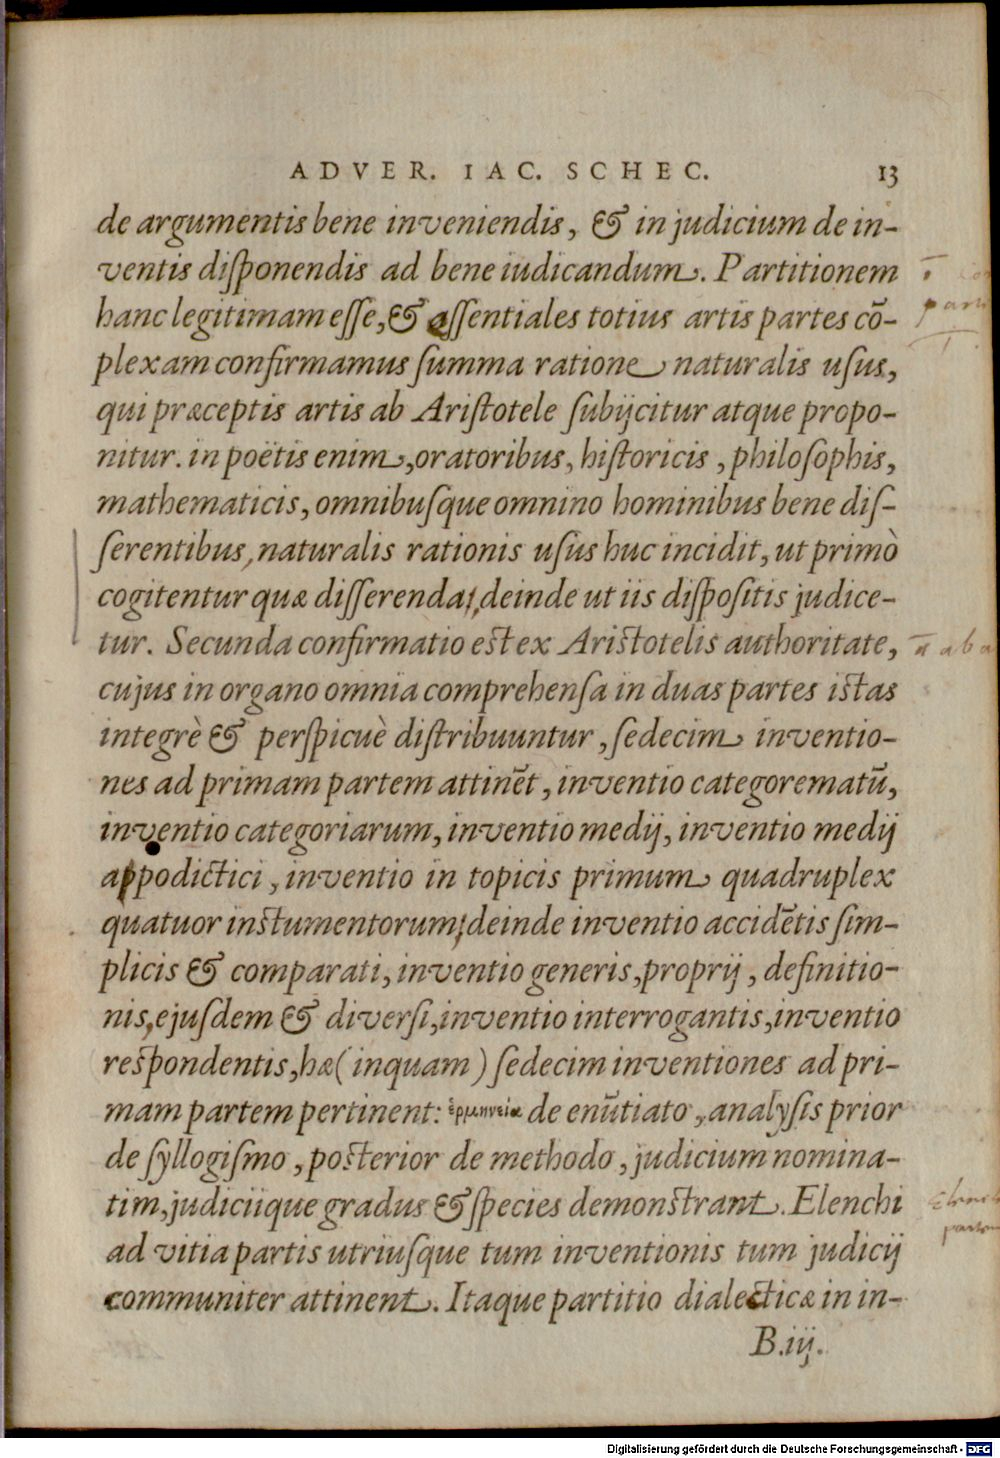 ADVER. IAC. SCHEC. 13
de argumentis bene inveniendis, & in judicium de in-
ventis diſponendis ad bene iudicandum. Partitionem
hanc legitimam eſſe, & eſſentiales totius artis partes cō-
plexam confirmamus ſumma ratione naturalis uſus,
qui præceptis artis ab Ariſtotele ſubijcitur atque propo-
nitur. in poëtis enim, oratoribus, hiſtoricis, philoſophis,
mathematicis, omnibuſque omnino hominibus bene diſ-
ſerentibus, naturalis rationis uſus huc incidit, ut primò
cogitentur quæ diſſerenda, deinde ut iis diſpoſitis judice-
tur. Secunda confirmatio est ex Aristotelis authoritate,
cujus in organo omnia comprehenſa in duas partes istas
integrè & perſpicuè diſtribuuntur, ſedecim inventio-
nes ad primam partem attinēt, inventio categorematū,
inventio categoriarum, inventio medij, inventio medij
appodictici, inventio in topicis primum quadruplex
quatuor instumentorum, deinde inventio accidētis ſim-
plicis & comparati, inventio generis, proprij, definitio-
nis, ejuſdem & diverſi, inventio interrogantis, inventio
respondentis, hæ (inquam) ſedecim inventiones ad pri-
mam partem pertinent: ἑρμηνεία de enūtiato, analyſis prior
de ſyllogiſmo, posterior de methodo, judicium nomina-
tim, judiciique gradus & ſpecies demonstrant. Elenchi
ad vitia partis utriuſque tum inventionis tum judicij
communiter attinent. Itaque partitio dialecticæ in in-
B.iij.
Digitalisierung gefördert durch die Deutsche Forschungsgemeinschaft - DFG